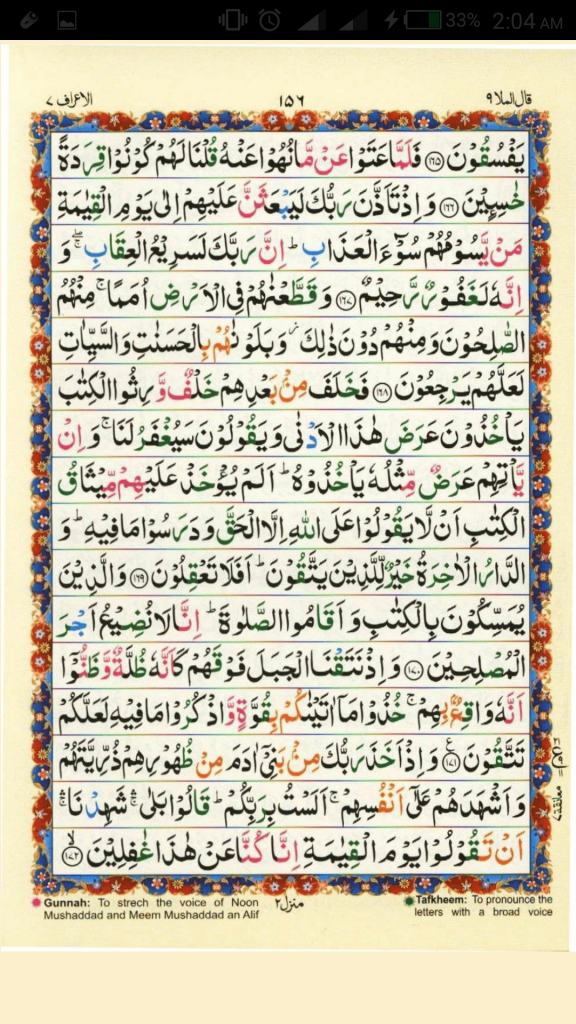 33% 2:04 AM
قال الملا ٩
١٥٦
الاعراف ٧
يَفْسُقُوْنَ ﴿۱۶۵﴾ فَلَمَّا عَتَوْا عَنْ مَّا نُهُوْا عَنْهُ قُلْنَا لَهُمْ كُوْنُوْا قِرَدَةً
خٰسِـِٕيْنَ ﴿۱۶۶﴾ وَ اِذْ تَاَذَّنَ رَبُّكَ لَيَبْعَثَنَّ عَلَيْهِمْ اِلٰى يَوْمِ الْقِيٰمَةِ
مَنْ يَّسُوْمُهُمْ سُوْٓءَ الْعَذَابِ ؕ اِنَّ رَبَّكَ لَسَرِيْعُ الْعِقَابِ ۚۖ وَ
اِنَّهٗ لَغَفُوْرٌ رَّحِيْمٌ ﴿۱۶۷﴾ وَ قَطَّعْنٰهُمْ فِى الْاَرْضِ اُمَمًا ۚ مِنْهُمُ
الصّٰلِحُوْنَ وَ مِنْهُمْ دُوْنَ ذٰلِكَ ؗ وَ بَلَوْنٰهُمْ بِالْحَسَنٰتِ وَ السَّيِّاٰتِ
لَعَلَّهُمْ يَرْجِعُوْنَ ﴿۱۶۸﴾ فَخَلَفَ مِنْۢ بَعْدِهِمْ خَلْفٌ وَّرِثُوا الْكِتٰبَ
يَاْخُذُوْنَ عَرَضَ هٰذَا الْاَدْنٰى وَ يَقُوْلُوْنَ سَيُغْفَرُ لَنَا ۚ وَ اِنْ
يَّاْتِهِمْ عَرَضٌ مِّثْلُهٗ يَاْخُذُوْهُ ؕ اَلَمْ يُؤْخَذْ عَلَيْهِمْ مِّيْثَاقُ
الْكِتٰبِ اَنْ لَّا يَقُوْلُوْا عَلَى اللّٰهِ اِلَّا الْحَقَّ وَ دَرَسُوْا مَا فِيْهِ ؕ وَ
الدَّارُ الْاٰخِرَةُ خَيْرٌ لِّلَّذِيْنَ يَتَّقُوْنَ ؕ اَفَلَا تَعْقِلُوْنَ ﴿۱۶۹﴾ وَ الَّذِيْنَ
يُمَسِّكُوْنَ بِالْكِتٰبِ وَ اَقَامُوا الصَّلٰوةَ ؕ اِنَّا لَا نُضِيْعُ اَجْرَ
الْمُصْلِحِيْنَ ﴿۱۷۰﴾ وَ اِذْ نَتَقْنَا الْجَبَلَ فَوْقَهُمْ كَاَنَّهٗ ظُلَّةٌ وَّ ظَنُّوْۤا
اَنَّهٗ وَاقِعٌۢ بِهِمْ ۚ خُذُوْا مَاۤ اٰتَيْنٰكُمْ بِقُوَّةٍ وَّ اذْكُرُوْا مَا فِيْهِ لَعَلَّكُمْ
تَتَّقُوْنَ ﴿۱۷۱﴾ وَ اِذْ اَخَذَ رَبُّكَ مِنْۢ بَنِيْۤ اٰدَمَ مِنْ ظُهُوْرِهِمْ ذُرِّيَّتَهُمْ
وَ اَشْهَدَهُمْ عَلٰۤى اَنْفُسِهِمْ ۚ اَلَسْتُ بِرَبِّكُمْ ؕ قَالُوْا بَلٰى ۛۚ شَهِدْنَا ۛۚ
اَنْ تَقُوْلُوْا يَوْمَ الْقِيٰمَةِ اِنَّا كُنَّا عَنْ هٰذَا غٰفِلِيْنَ ﴿۱۷۲﴾ۙ
معانقة ٧
Gunnah: To strech the voice of Noon
Mushaddad and Meem Mushaddad an Alif
منزل ٢
Tafkheem: To pronounce the
letters with a broad voice